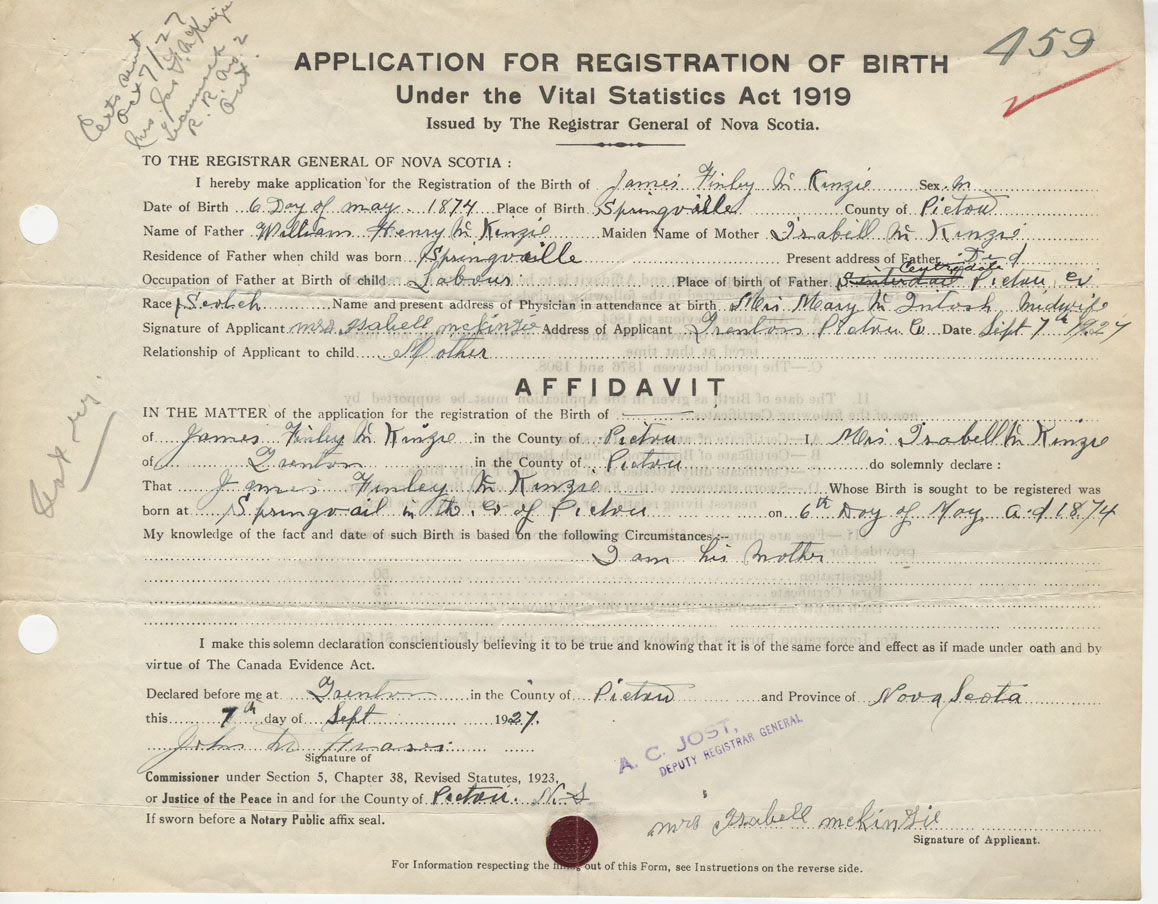 Certs sent
Oct 7/27
Mrs. Jas. F. McKenzie
R. R. No 2
Ont.
459
APPLICATION FOR REGISTRATION OF BIRTH
Under the Vital Statistics Act 1919
Issued by The Registrar General of Nova Scotia.
TO THE REGISTRAR GENERAL OF NOVA SCOTIA :
I hereby make application for the Registration of the Birth of James Finley Mc Kinzie Sex M
Date of Birth 6 Day of may. 1874 Place of Birth Springville County of Pictou
Name of Father William Henry Mc Kinzie Maiden Name of Mother Isabell Mc Kinzie
Residence of Father when child was born Springville Present address of Father Died
Occupation of Father at Birth of child Labour Place of birth of Father Pictou Co
Race Scotch Name and present address of Physician in attendance at birth Mrs Mary Mc Intosh midwife
Signature of Applicant mrs Isabell mckinzie Address of Applicant Trenton Pictou Co Date Sept. 7th 1927
Relationship of Applicant to child Mother
AFFIDAVIT
IN THE MATTER of the application for the registration of the Birth of
of James Finley Mc Kinzie in the County of Pictou I, Mrs Isabell Mc Kinzie
of Trenton in the County of Pictou do solemnly declare :
That James Finley Mc Kinzie Whose Birth is sought to be registered was
born at Springvail in the Co of Pictou on 6th Day of May a.d 1874
My knowledge of the fact and date of such Birth is based on the following Circumstances:-
I am his mother
I make this solemn declaration conscientiously believing it to be true and knowing that it is of the same force and effect as if made under oath and by
virtue of The Canada Evidence Act.
Declared before me at Trenton in the County of Pictou and Province of Nova Scota
this 7th day of Sept 1927.
John W Fraser
Signature of
Commissioner under Section 5, Chapter 38, Revised Statutes, 1923,
or Justice of the Peace in and for the County of Pictou. N.S
If sworn before a Notary Public affix seal.
A. C. JOST,
DEPUTY REGISTRAR GENERAL
mrs Isabell mckinzie
Signature of Applicant.
For Information respecting the filling out of this Form, see Instructions on the reverse side.